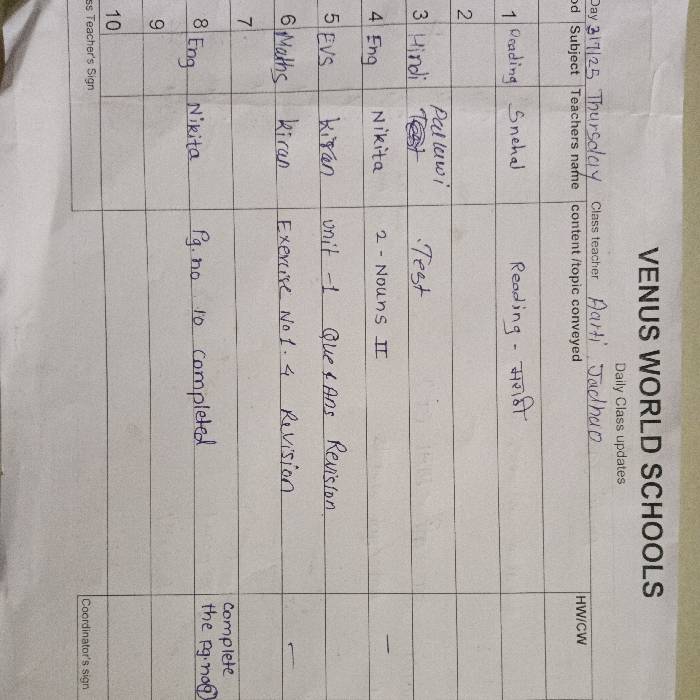 VENUS WORLD SCHOOLS
Daily Class updates
Day 3/7/25 Thursday Class teacher Aarti Jadhao
od Subject Teachers name content /topic conveyed HW/CW
1 Reading Snehal Reading - मराठी
2
3 Hindi Pallawi Test
4 Eng Nikita 2 - Nouns II -
5 EVS Kiran Unit -1 Que & Ans Revision.
6 Maths Kiran Exercise No 1. 4 Revision -
7
8 Eng Nikita Pg. no 10 completed complete
the pg. no 9
9
10
ss Teacher's Sign Coordinator's sign